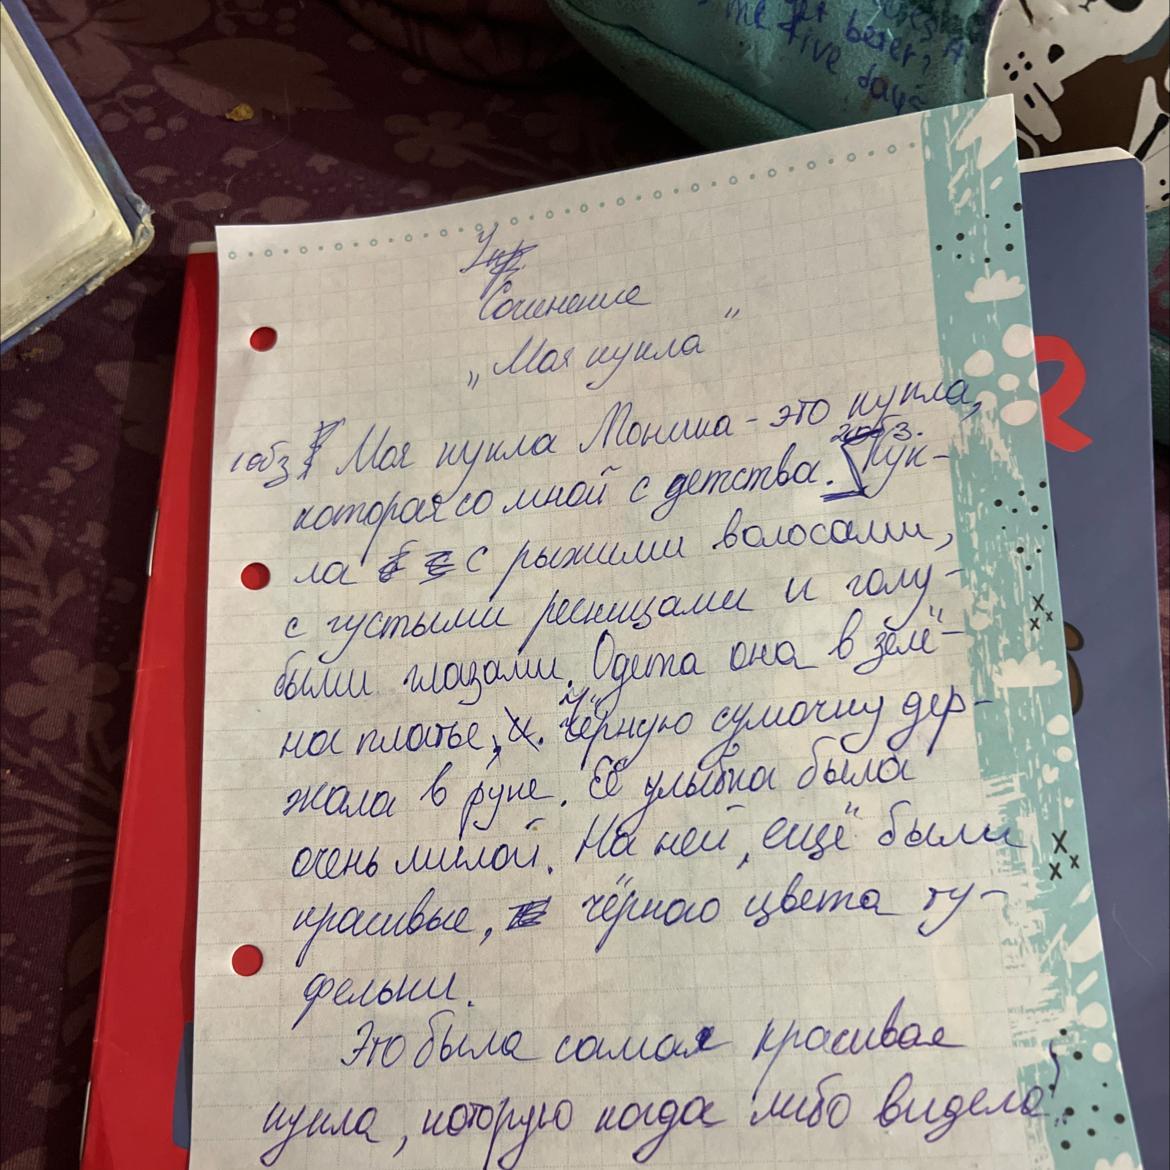 me get better?
five days
Упр.
Сочинение
„Моя кукла"
1 абз Моя кукла Моника - это кукла,
которая со мной с детства. 2абз. Кук-
ла с рыжими волосами,
с густыми ресницами и голу-
быми глазами. Одета она в зелё-
на платье, и чёрную сумочку дер-
жала в руке. Её улыбка была
очень милой. На ней, ещё были
красивые, чёрного цвета ту-
фельки.
Это была самая красивая
кукла, которую когда либо видела!